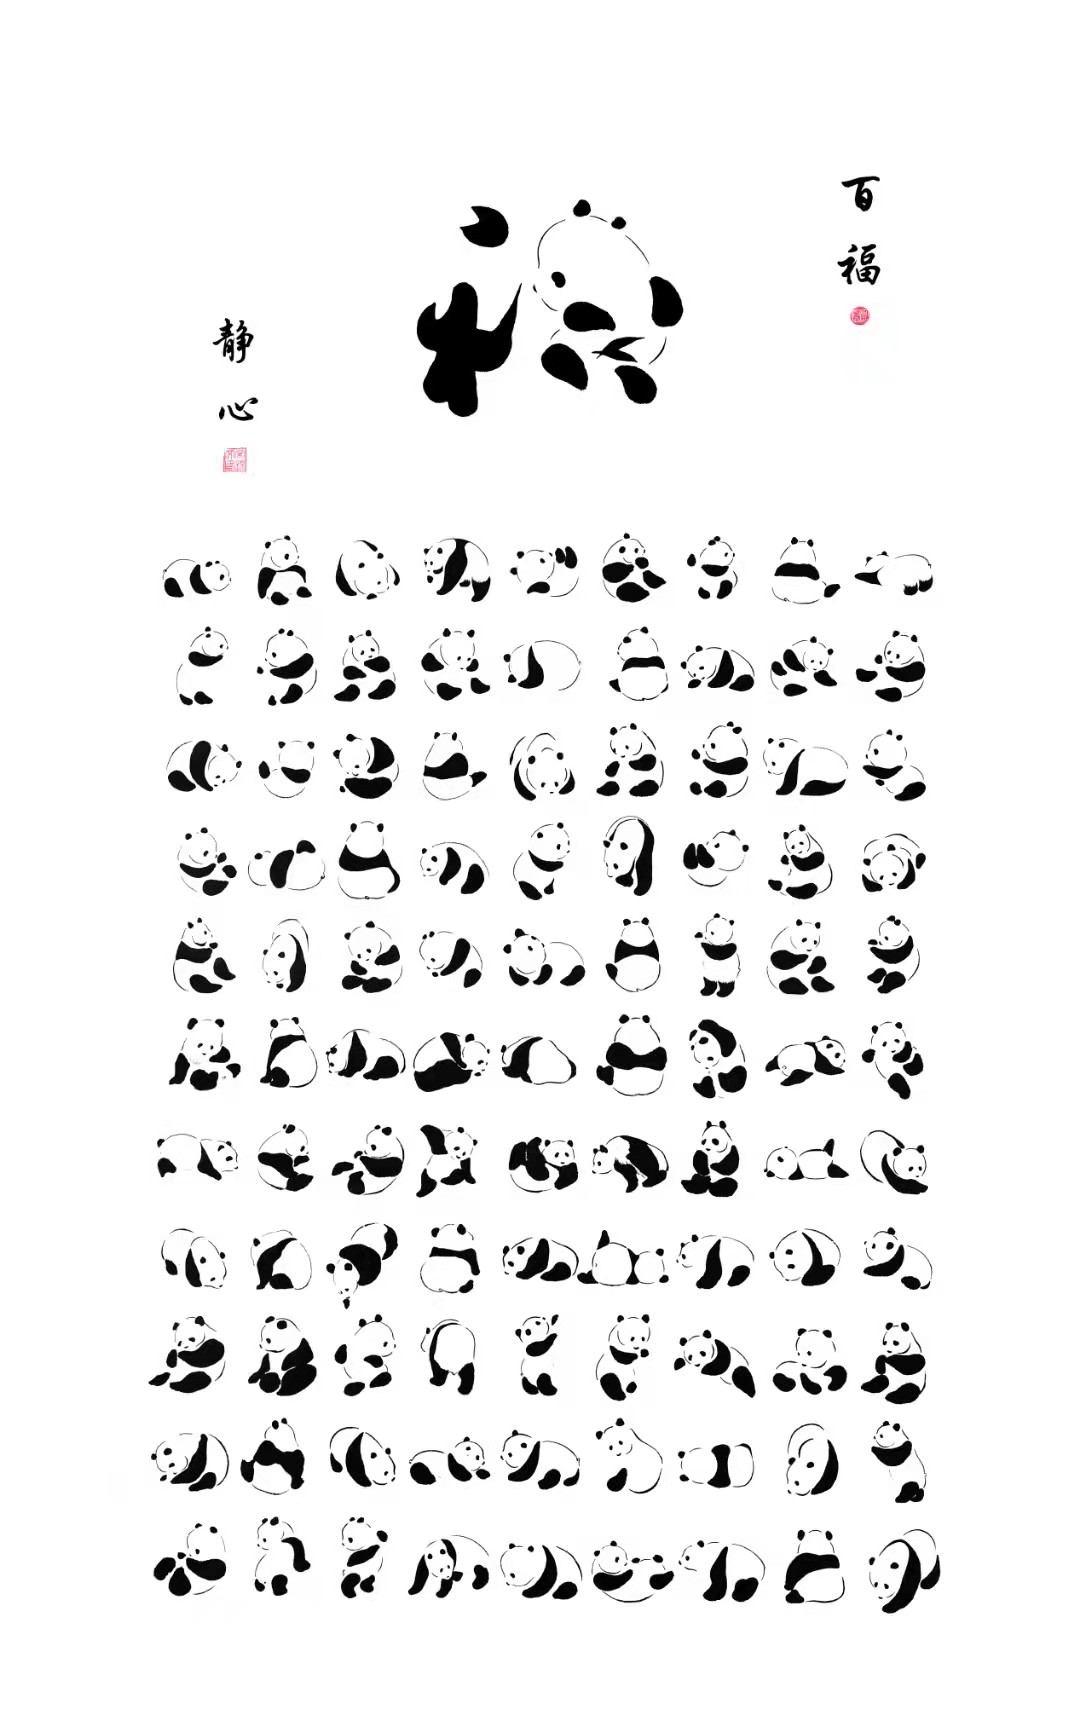 百福
福
静心